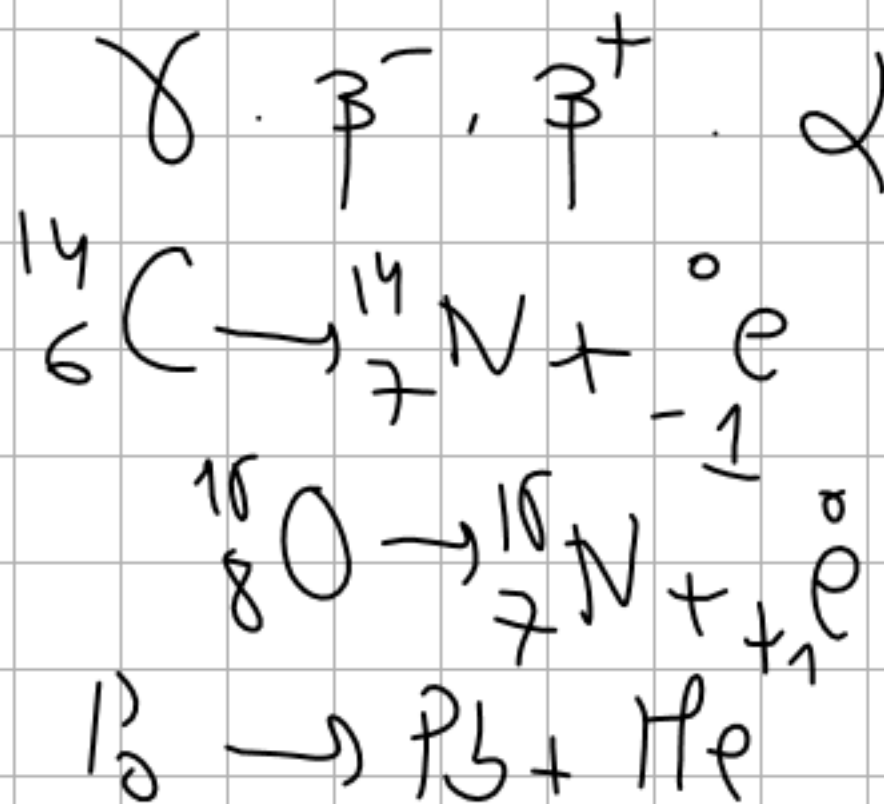 γ . β⁻ , β⁺ . α
¹⁴₆C → ¹⁴₇N + ⁰₋₁e
¹⁸₈O → ¹⁸₇N + ⁰₊₁e
Po → Pb + He